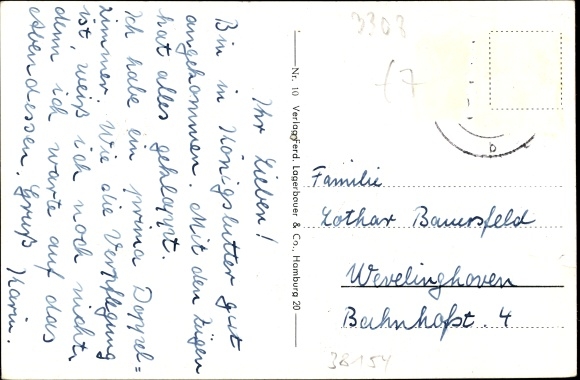 Ihr Lieben!
Bin in Königslutter gut
angekommen. Mit den Zügen
hat alles geklappt.
Ich habe ein prima Doppel=
zimmer. Wie die Verpflegung
ist, weiß ich noch nicht,
denn ich warte auf das
Abendessen. Gruß Karin.
Nr. 10 Verlag Ferd. Lagerbauer & Co., Hamburg 20
3303
(7
b
Familie
Lothar Bauersfeld
Wevelinghoven
Bahnhofst. 4
38154